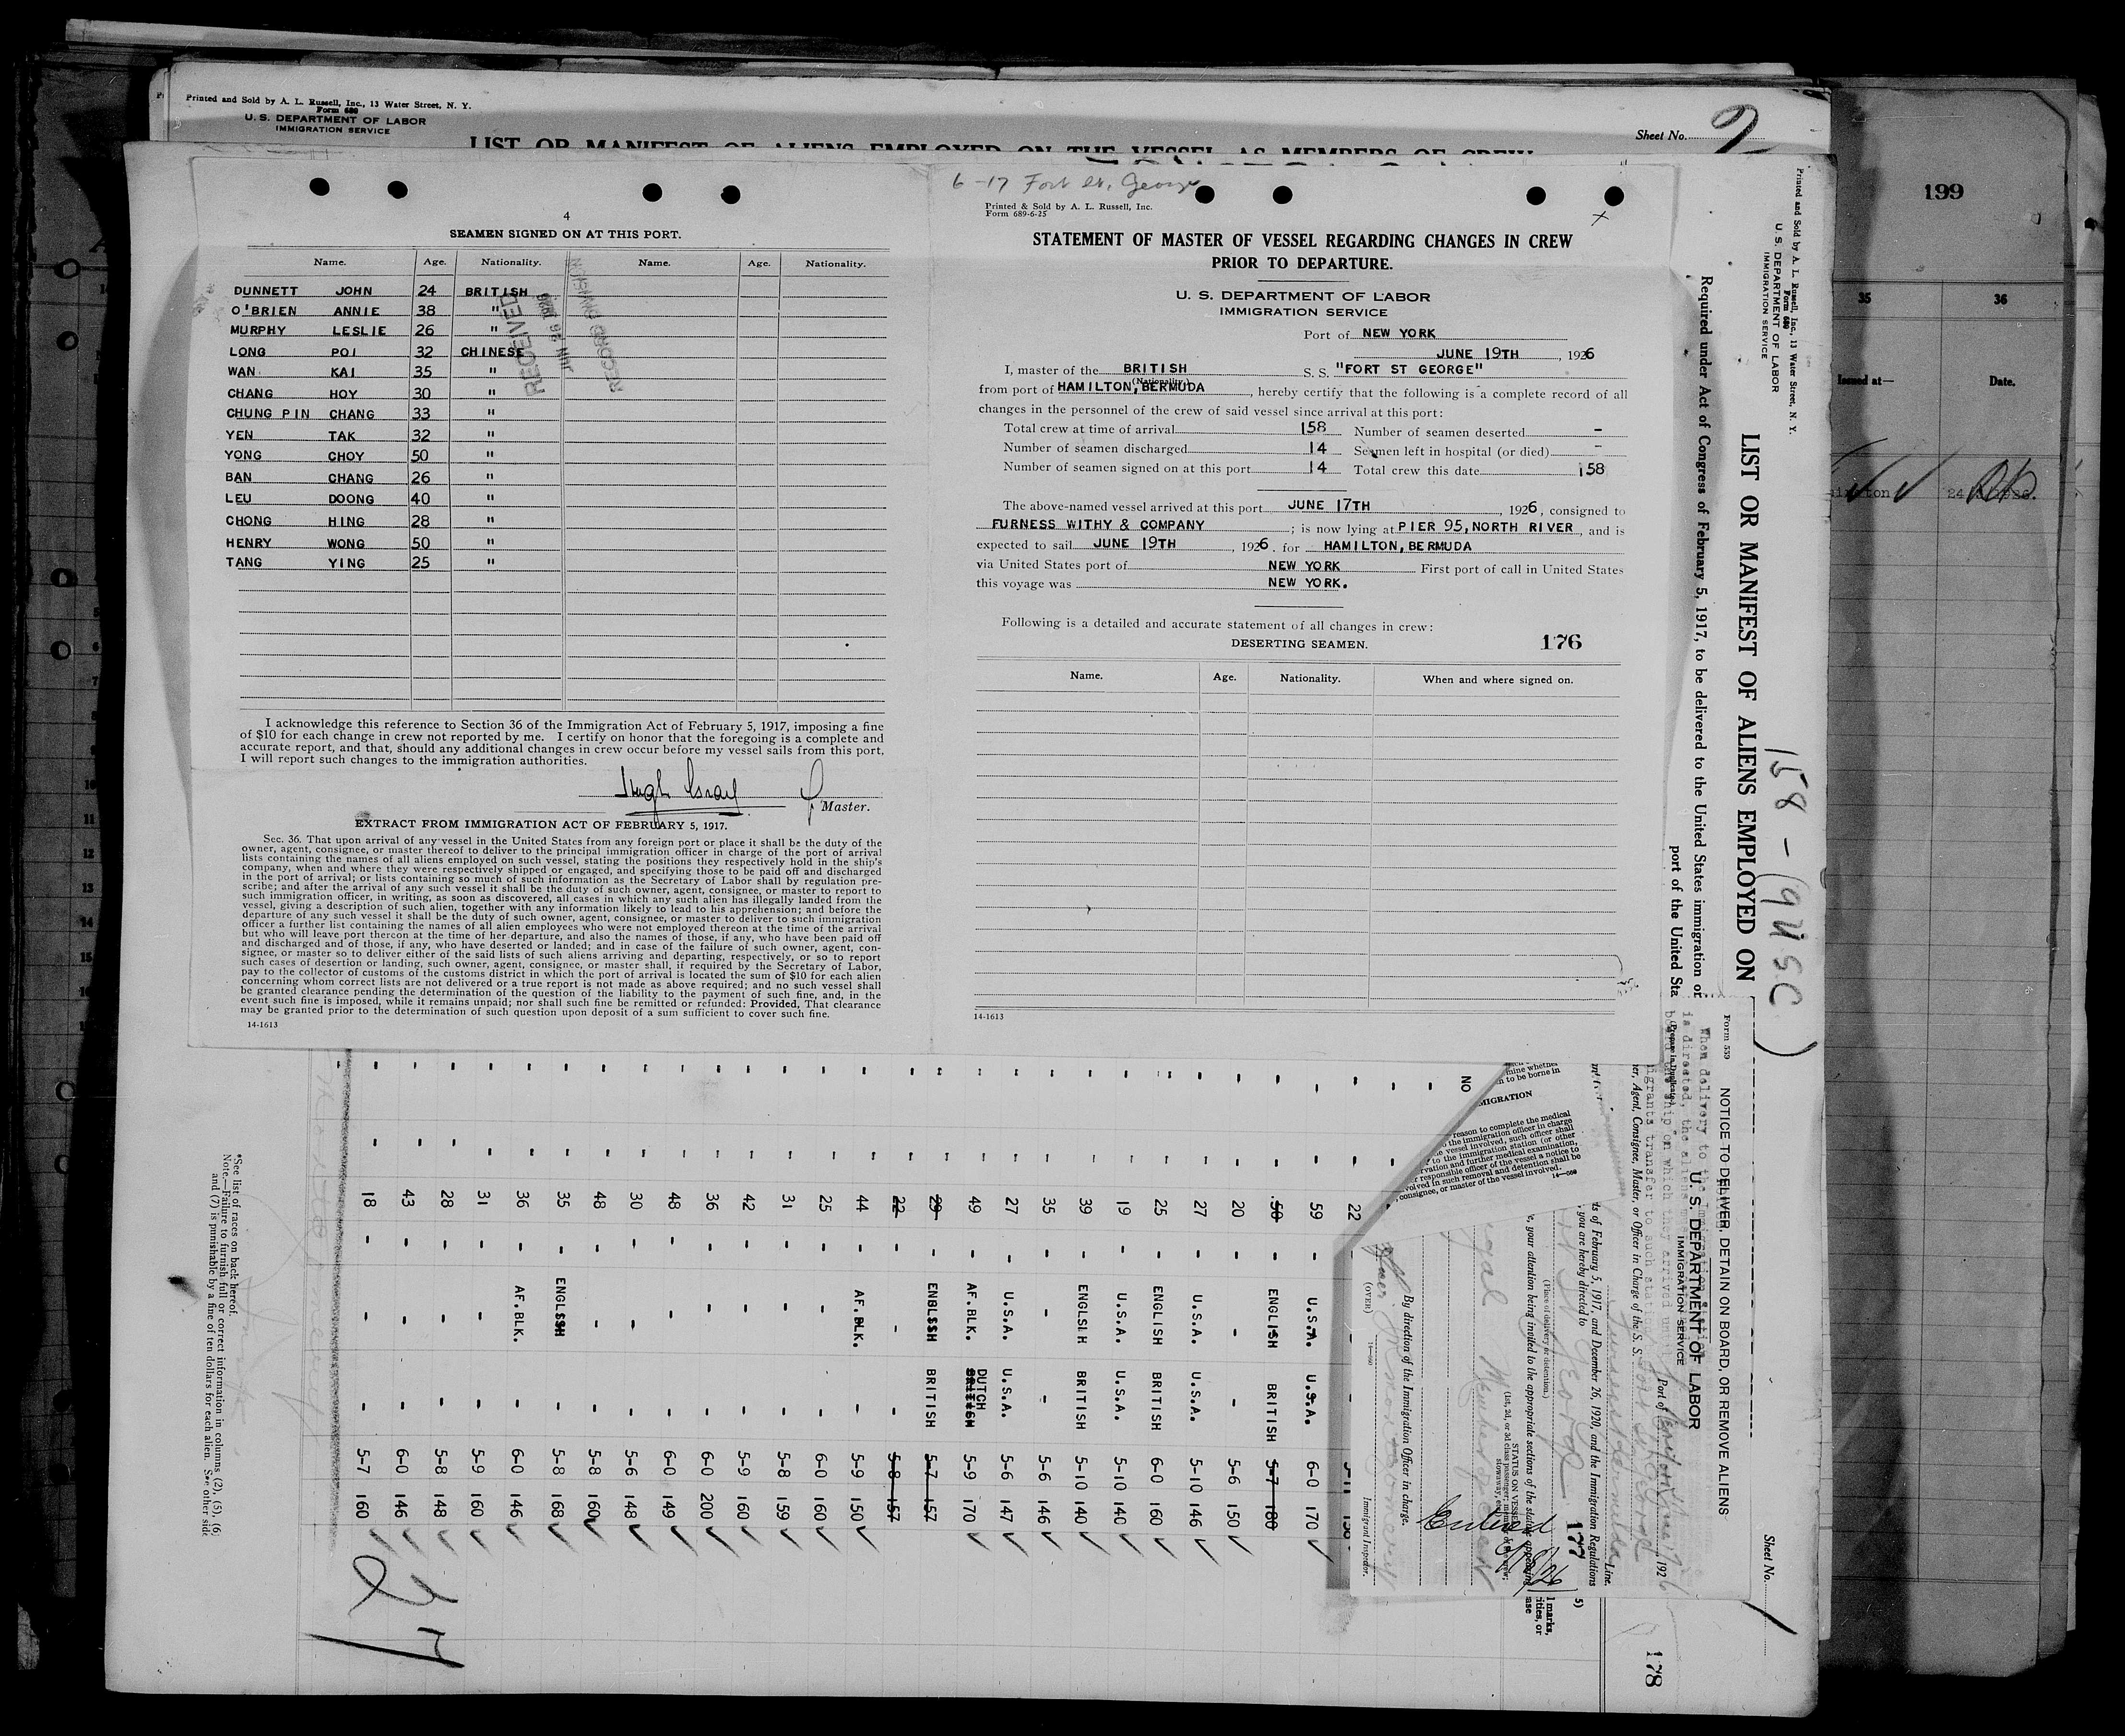 Printed and Sold by A. L. Russell, Inc., 13 Water Street, N. Y.
Form 680
U. S. DEPARTMENT OF LABOR
IMMIGRATION SERVICE
LIST OR MANIFEST OF ALIENS EMPLOYED ON THE VESSEL AS MEMBERS OF CREW
Sheet No. 2
199
35 36
Issued at— Date.
4
SEAMEN SIGNED ON AT THIS PORT.
Name. Age. Nationality. Name. Age. Nationality.
DUNNETT JOHN 24 BRITISH
O'BRIEN ANNIE 38 "
MURPHY LESLIE 26 "
LONG POI 32 CHINESE
WAN KAI 35 "
CHANG HOY 30 "
CHUNG PIN CHANG 33 "
YEN TAK 32 "
YONG CHOY 50 "
BAN CHANG 26 "
LEU DOONG 40 "
CHONG HING 28 "
HENRY WONG 50 "
TANG YING 25 "
RECEIVED
RECORD DIVISION
I acknowledge this reference to Section 36 of the Immigration Act of February 5, 1917, imposing a fine
of $10 for each change in crew not reported by me. I certify on honor that the foregoing is a complete and
accurate report, and that, should any additional changes in crew occur before my vessel sails from this port,
I will report such changes to the immigration authorities.
Master.
EXTRACT FROM IMMIGRATION ACT OF FEBRUARY 5, 1917.
Sec. 36. That upon arrival of any vessel in the United States from any foreign port or place it shall be the duty of the
owner, agent, consignee, or master thereof to deliver to the principal immigration officer in charge of the port of arrival
lists containing the names of all aliens employed on such vessel, stating the positions they respectively hold in the ship's
company, when and where they were respectively shipped or engaged, and specifying those to be paid off and discharged
in the port of arrival; or lists containing so much of such information as the Secretary of Labor shall by regulation pre-
scribe; and after the arrival of any such vessel it shall be the duty of such owner, agent, consignee, or master to report to
such immigration officer, in writing, as soon as discovered, all cases in which any such alien has illegally landed from the
vessel, giving a description of such alien, together with any information likely to lead to his apprehension; and before the
departure of any such vessel it shall be the duty of such owner, agent, consignee, or master to deliver to such immigration
officer a further list containing the names of all alien employees who were not employed thereon at the time of the arrival
but who will leave port thereon at the time of her departure, and also the names of those, if any, who have been paid off
and discharged and of those, if any, who have deserted or landed; and in case of the failure of such owner, agent, con-
signee, or master so to deliver either of the said lists of such aliens arriving and departing, respectively, or so to report
such cases of desertion or landing, such owner, agent, consignee, or master shall, if required by the Secretary of Labor,
pay to the collector of customs of the customs district in which the port of arrival is located the sum of $10 for each alien
concerning whom correct lists are not delivered or a true report is not made as above required; and no such vessel shall
be granted clearance pending the determination of the question of the liability to the payment of such fine, and, in the
event such fine is imposed, while it remains unpaid; nor shall such fine be remitted or refunded: Provided, That clearance
may be granted prior to the determination of such question upon deposit of a sum sufficient to cover such fine.
14-1613
6-17 Fort St. George
Printed & Sold by A. L. Russell, Inc.
Form 689-6-25
STATEMENT OF MASTER OF VESSEL REGARDING CHANGES IN CREW
PRIOR TO DEPARTURE.
U. S. DEPARTMENT OF LABOR
IMMIGRATION SERVICE
Port of NEW YORK
JUNE 19TH, 1926
I, master of the BRITISH S. S. "FORT ST GEORGE"
(Nationality)
from port of HAMILTON, BERMUDA, hereby certify that the following is a complete record of all
changes in the personnel of the crew of said vessel since arrival at this port:
Total crew at time of arrival 158 Number of seamen deserted -
Number of seamen discharged 14 Seamen left in hospital (or died) -
Number of seamen signed on at this port 14 Total crew this date 158
The above-named vessel arrived at this port JUNE 17TH, 1926, consigned to
FURNESS WITHY & COMPANY; is now lying at PIER 95, NORTH RIVER, and is
expected to sail JUNE 19TH, 1926, for HAMILTON, BERMUDA
via United States port of NEW YORK First port of call in United States
this voyage was NEW YORK.
Following is a detailed and accurate statement of all changes in crew:
DESERTING SEAMEN. 176
Name. Age. Nationality. When and where signed on.
14-1613
Printed and Sold by A. L. Russell, Inc., 13 Water Street, N. Y.
Form 680
U. S. DEPARTMENT OF LABOR
IMMIGRATION SERVICE
LIST OR MANIFEST OF ALIENS EMPLOYED ON
Required under Act of Congress of February 5, 1917, to be delivered to the United States immigration or
port of the United Sta
158 - (9 U S C)
Sheet No. 1
178
Form 559
NOTICE TO DELIVER, DETAIN ON BOARD, OR REMOVE ALIENS
U. S. DEPARTMENT OF LABOR
IMMIGRATION SERVICE
(Prepare in Duplicate)
Port of
, 192
er, Agent, Consignee, Master, or Officer in Charge of the S. S.
Line.
ts of February 5, 1917, and December 26, 1920, and the Immigration Regulations
, you are hereby directed to
177
(Place of delivery or detention.)
e, your attention being invited to the appropriate sections of the statute
STATUS ON VESSEL
By direction of the Immigration Officer in charge.
Immigrant Inspector.
(OVER)
MIGRATION
reason to complete the medical
the immigration officer in charge
vessel involved, such officer shall
to the immigration station (or other
rvation and further medical examination,
responsible officer of the vessel a notice to
volved in such removal and detention shall be
, consignee, or master of the vessel involved.
NO
22
59 U.S.A. U.S.A. 6-0 170
50 ENGLISH BRITISH 5-7 180
20 - - 5-6 150
27 U.S.A. U.S.A. 5-10 146
25 ENGLISH BRITISH 6-0 160
19 U.S.A. U.S.A. 5-10 140
39 ENGLSIH BRITISH 5-10 140
35 - - 5-6 146
27 U.S.A. U.S.A. 5-6 147
49 AF.BLK. DUTCH BRITISH 5-9 170
29 ENGLISH BRITISH 5-7 157
22 - - 5-8 157
44 AF.BLK. - 5-9 150
25 - - 6-0 160
31 - - 5-8 159
42 - - 5-9 160
36 - - 6-0 200
48 - - 6-0 149
30 - - 5-6 148
48 - - 5-8 160
35 ENGLISH - 5-8 168
36 AF.BLK. - 6-0 146
31 - - 5-9 160
28 - - 5-8 148
43 - - 6-0 146
18 - - 5-7 160
*See list of races on back hereof.
Note.—Failure to furnish full or correct information in columns (2), (5), (6)
and (7) is punishable by a fine of ten dollars for each alien. See other side